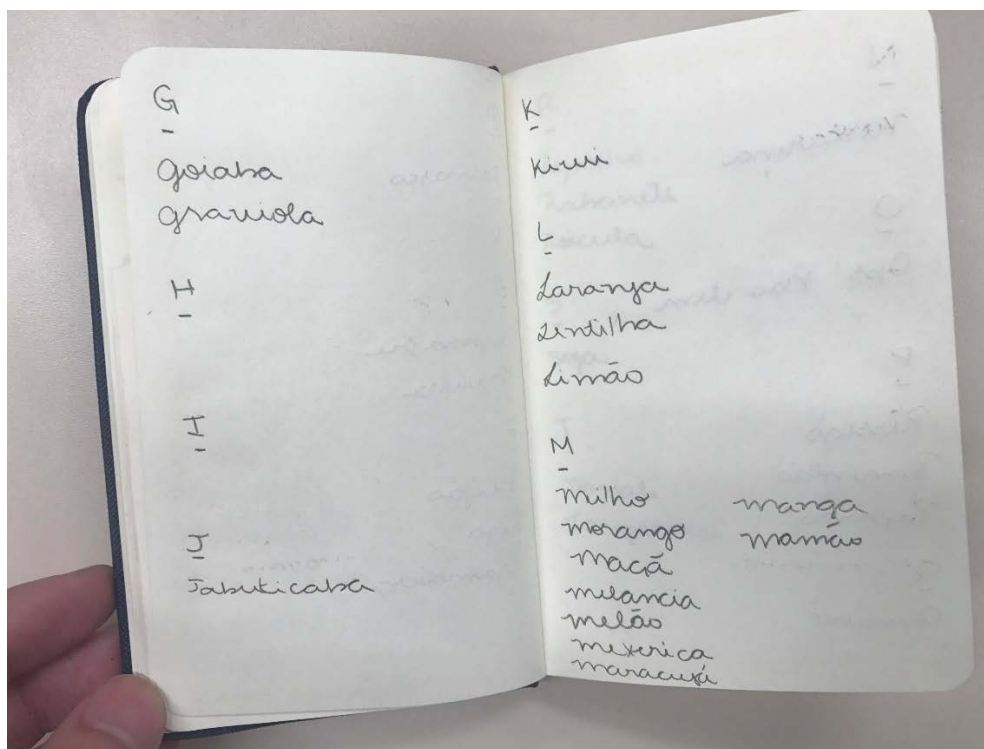 G
Goiaba
graviola
H
I
J
Jabuticaba
K
Kiwi
L
Laranja
Lentilha
Limão
M
milho manga
morango mamão
maçã
melancia
melão
mexerica
maracujá